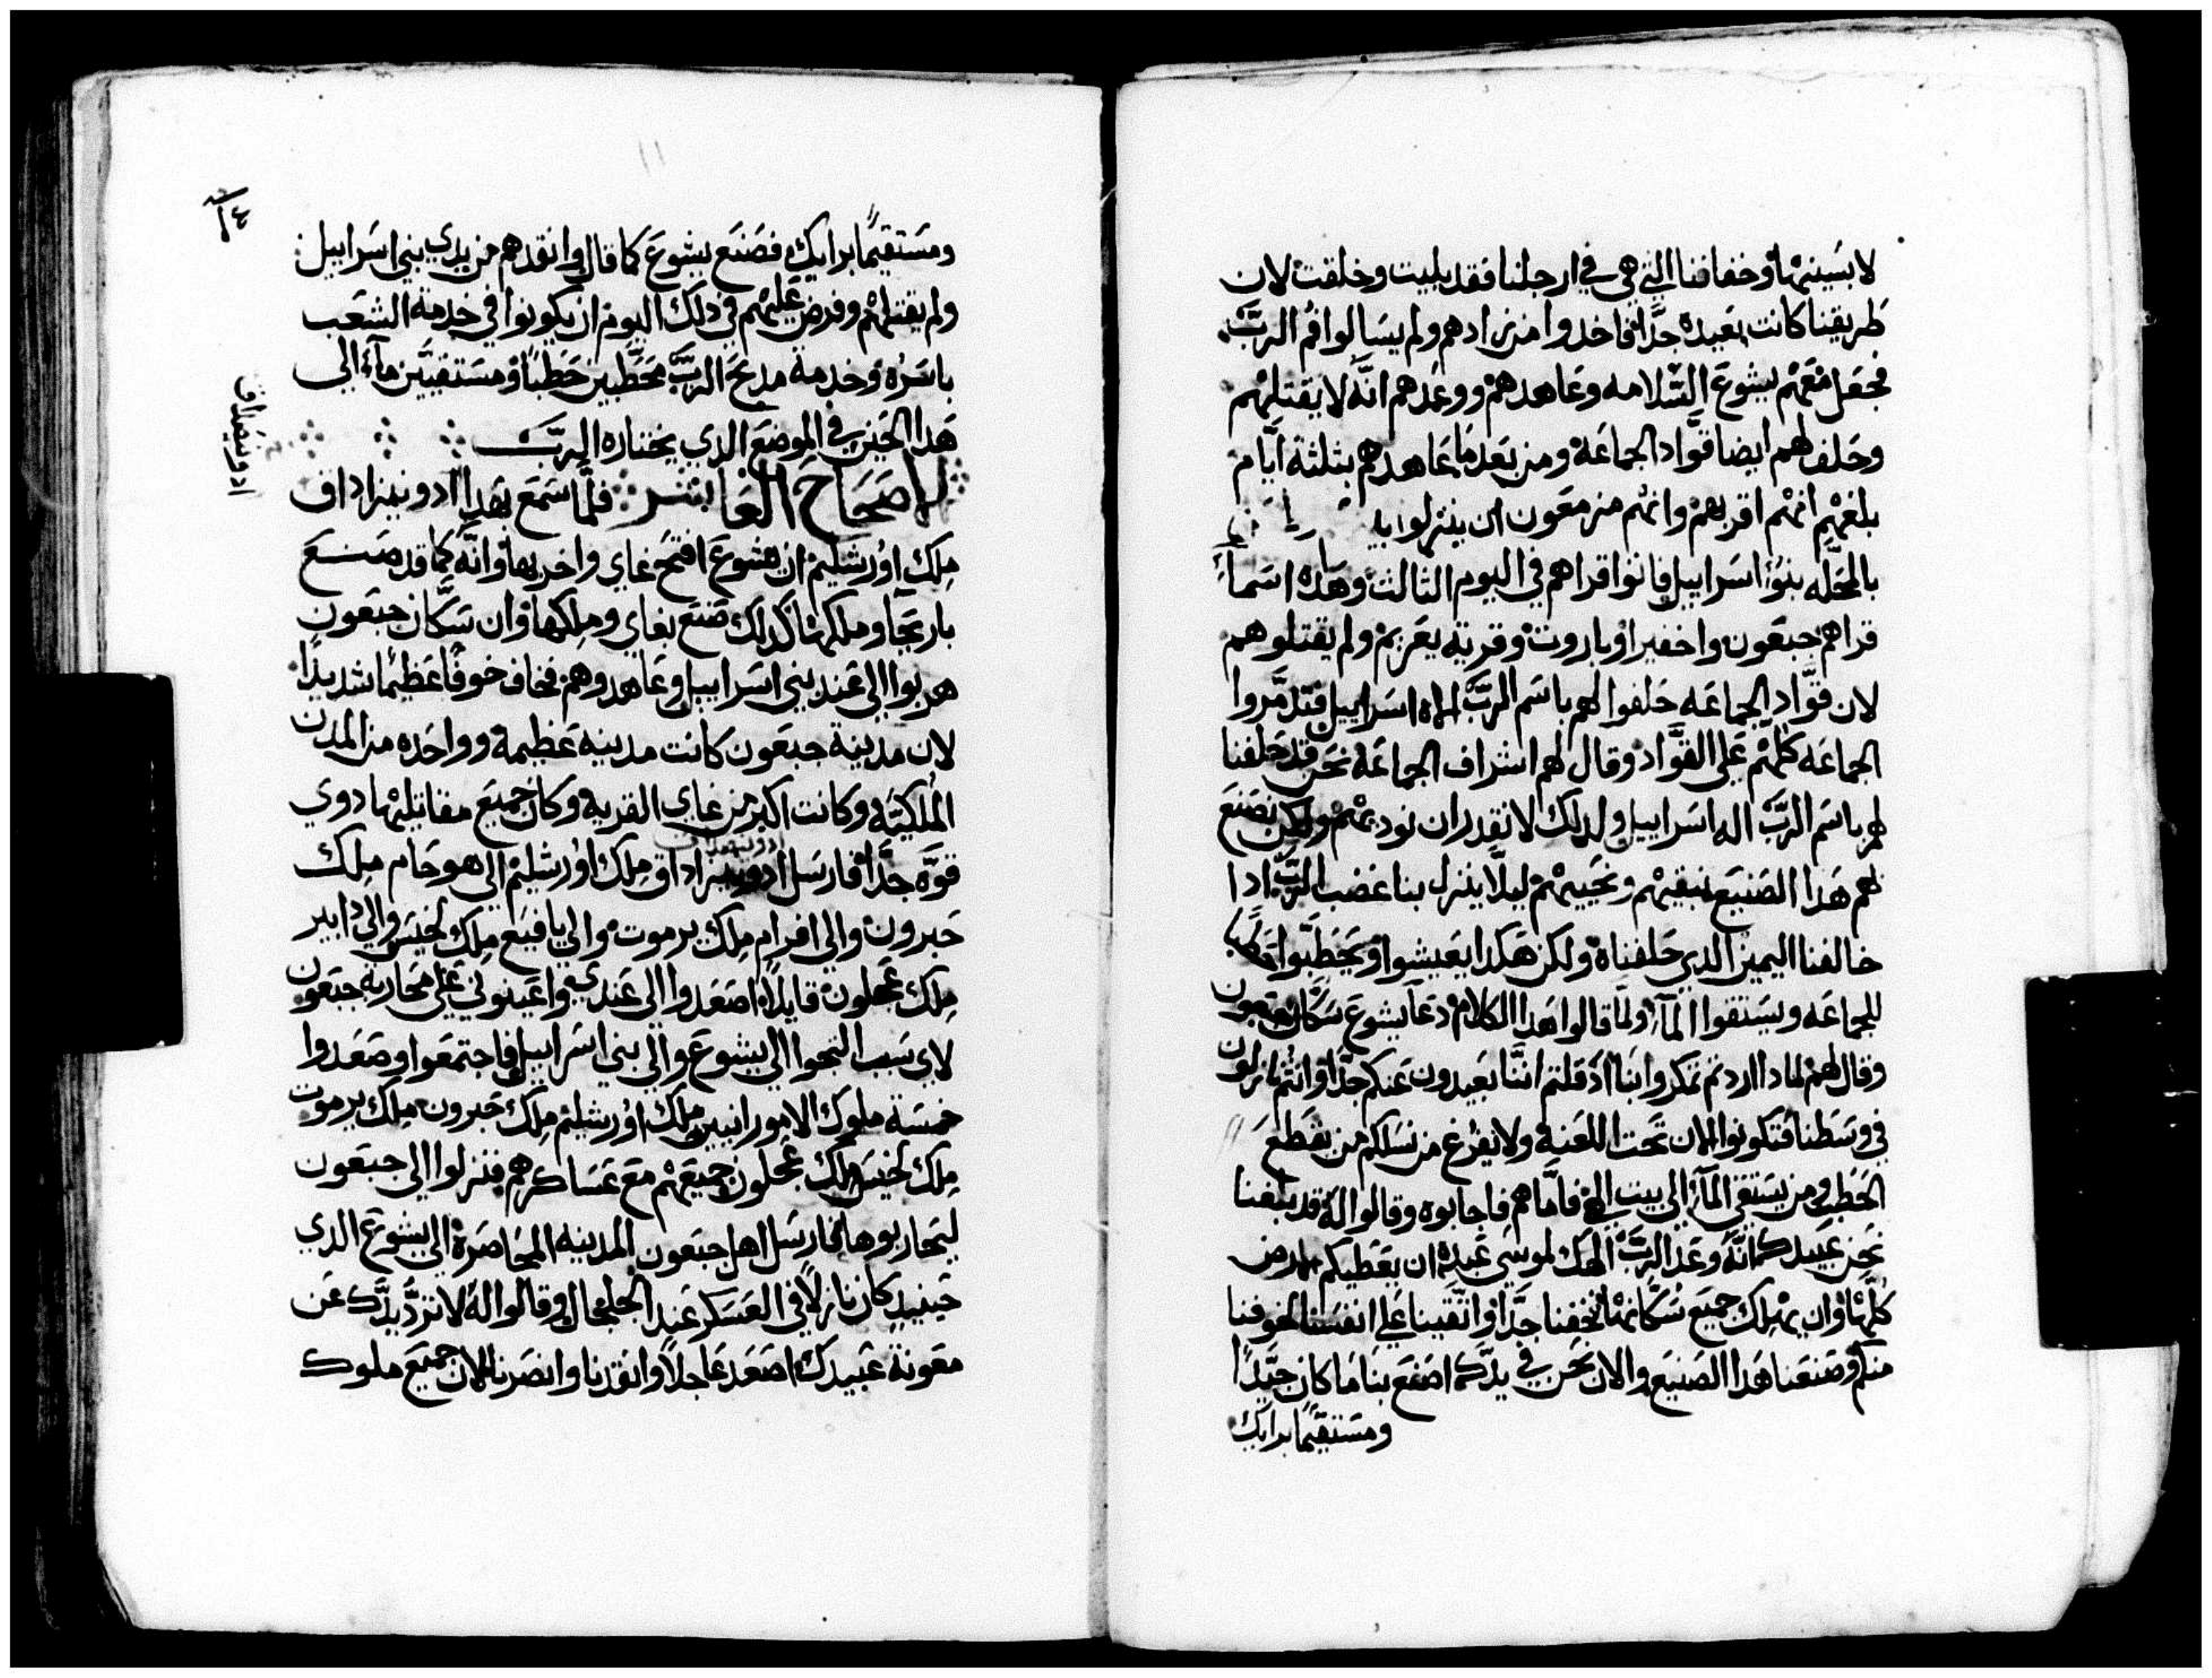 لابسينها وخفافنا التي هي في ارجلنا فقد بليت وخلقت لان
طريقنا كانت بعيده جدًا فاخدوا من زادهم ولم يسالوا فم الربّ
فجعل معهم يشوع السّلامه وعاهدهم ووعدهم انّه لا يقتلهم
وحلف لهم ايضا قوّاد الجماعة ومن بعد ما عاهدهم بثلثة ايّام
بلغهم انهم اقربهم وانهم مزمعون ان ينزلوا
بالمحلّه بنوا اسراييل فاتوا قراهم في اليوم التالت وهذه اسمآء
قراهم جبعون واخفيرا وباروت وقرية يعريم ولم يقتلوهم
لان قوّاد الجماعه حلفوا لهم باسم الربّ اله اسراييل فتدمّروا
الجماعه كلهم على القوّاد وقال لهم اشراف الجماعة نحن قد حلفنا
لهم باسم الربّ اله اسراييل ولدلك لا نقدر ان نوديهم ولكن نصنع
لهم هدا الصنيع نبقيهم ونحييهم ليلّا ينزل بنا غضب الربّ ادا
خالفنا اليمين الدي حلفناه ولكن هكدا يعيشوا ويحطّبوا حطبًا
للجماعه ويستقوا المآء ولمّا قالوا هدا الكلام دعا يشوع سكّان جبعون
وقال لهم لمادا اردتم تمكروا بنا اد قلتم انّنا بعيدون عنكم جدًا وانتم نازلون
في وسطنا فتكونوا الان تحت اللعنة ولا يفرغ من نسلكم من يقطع
الحطب ومن يستقي المآء الى بيت الهي فامّا هم فاجابوه وقالوا له قد بلغنا
نحن عبيدك انّه وعد الربّ الهك لموسى عبده ان يعطيكم الارض
كلّها وان يهلك جميع سكّانها فخفنا جدًّا واتّقينا على انفسنا لخوفنا
منكم وصنعنا هدا الصنيع والان نحن في يدّك اصنع بنا ما كان جيّدًا
ومستقيمًا برايك
ومستقيمًا برايك فصنع يشوع كما قال وانقدهم من يدي بني اسراييل
ولم يقتلهم وفرض عليهم في دلك اليوم ان يكونوا في خدمة الشعب
باسره وخدمة مدبح الربّ محطّبين حطبًا ومستقيّين مآء الى
هدا الحين في الموضع الدي يختاره الربّ
الاصحاح العاشر فلمّا سمع بهدا ادونيزاداق
ملك اورشليم ان يشوع افتتح غاي واخربها وانّه كما قد صنع
باريحا وملكها كدلك صنع بغاي وملكها وان سكّان جبعون
هربوا الى عند بني اسراييل وعاهدوهم فخاف خوفًا عظيمًا شديدًا
لان مدينة جبعون كانت مدينه عظيمة وواحده من المدن
الملكيّة وكانت اكبر من غاي القرية وكان جميع مقاتليها دوي
قوّه جدًّا فارسل ادونيزاداق ملك اورشليم الى هوحام ملك
حبرون والى افرام ملك يرموت والى يافيع ملك لخيس والى دابير
ملك عجلون قايلًا اصعدوا الى عندي واعينوني على محاربة جبعون
لاي سبب التحوا الى يشوع والى بني اسراييل فاجتمعوا وصعدوا
خمسة ملوك الامورانيين ملك اورشليم ملك حبرون ملك يرموت
ملك لخيس ملك عجلون جميعهم مع عساكرهم فنزلوا الى جبعون
ليحاربوها فارسل اهل جبعون المدينه المحاصرة الى يشوع الدي
حينيد كان نازلًا في العسكر عند الجلجال وقالوا له لا تردّ يدّك عن
معونة عبيدك اصعد عاجلًا وانقدنا وانصرنا لان جميع ملوك
ادونيصداق